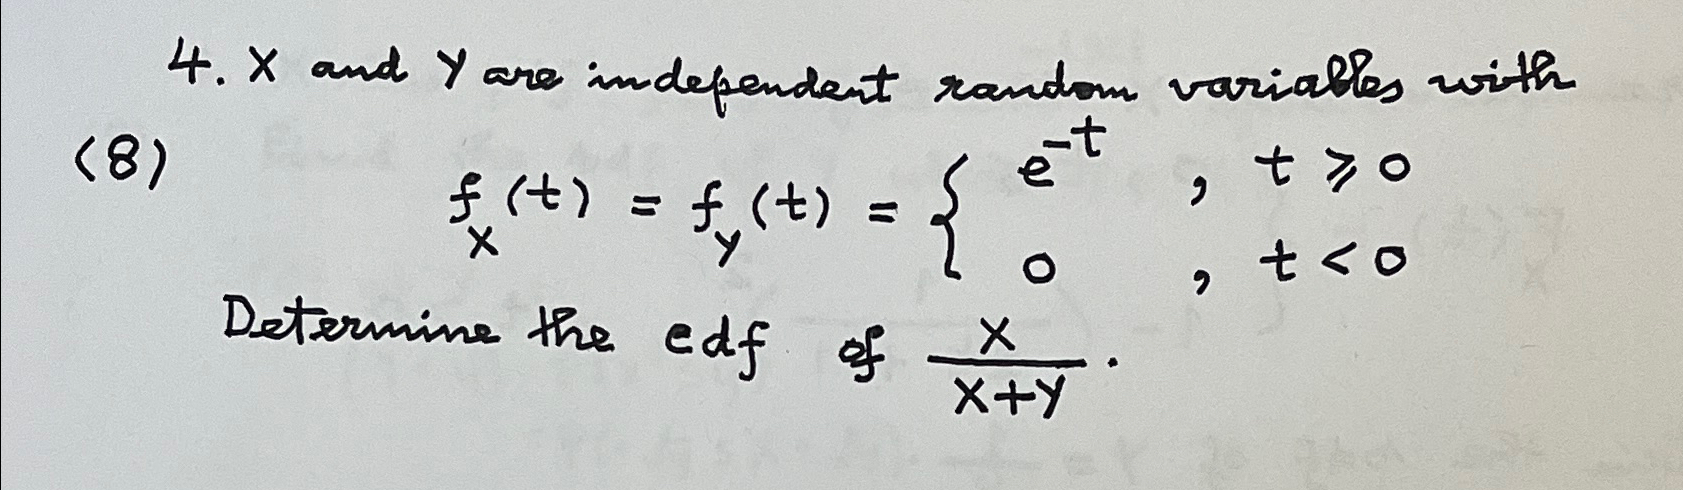 4. X and Y are independent random variables with
(8)
f_X(t) = f_Y(t) = { e^{-t} , t ≥ 0
0 , t < 0
Determine the cdf of X/(X+Y).